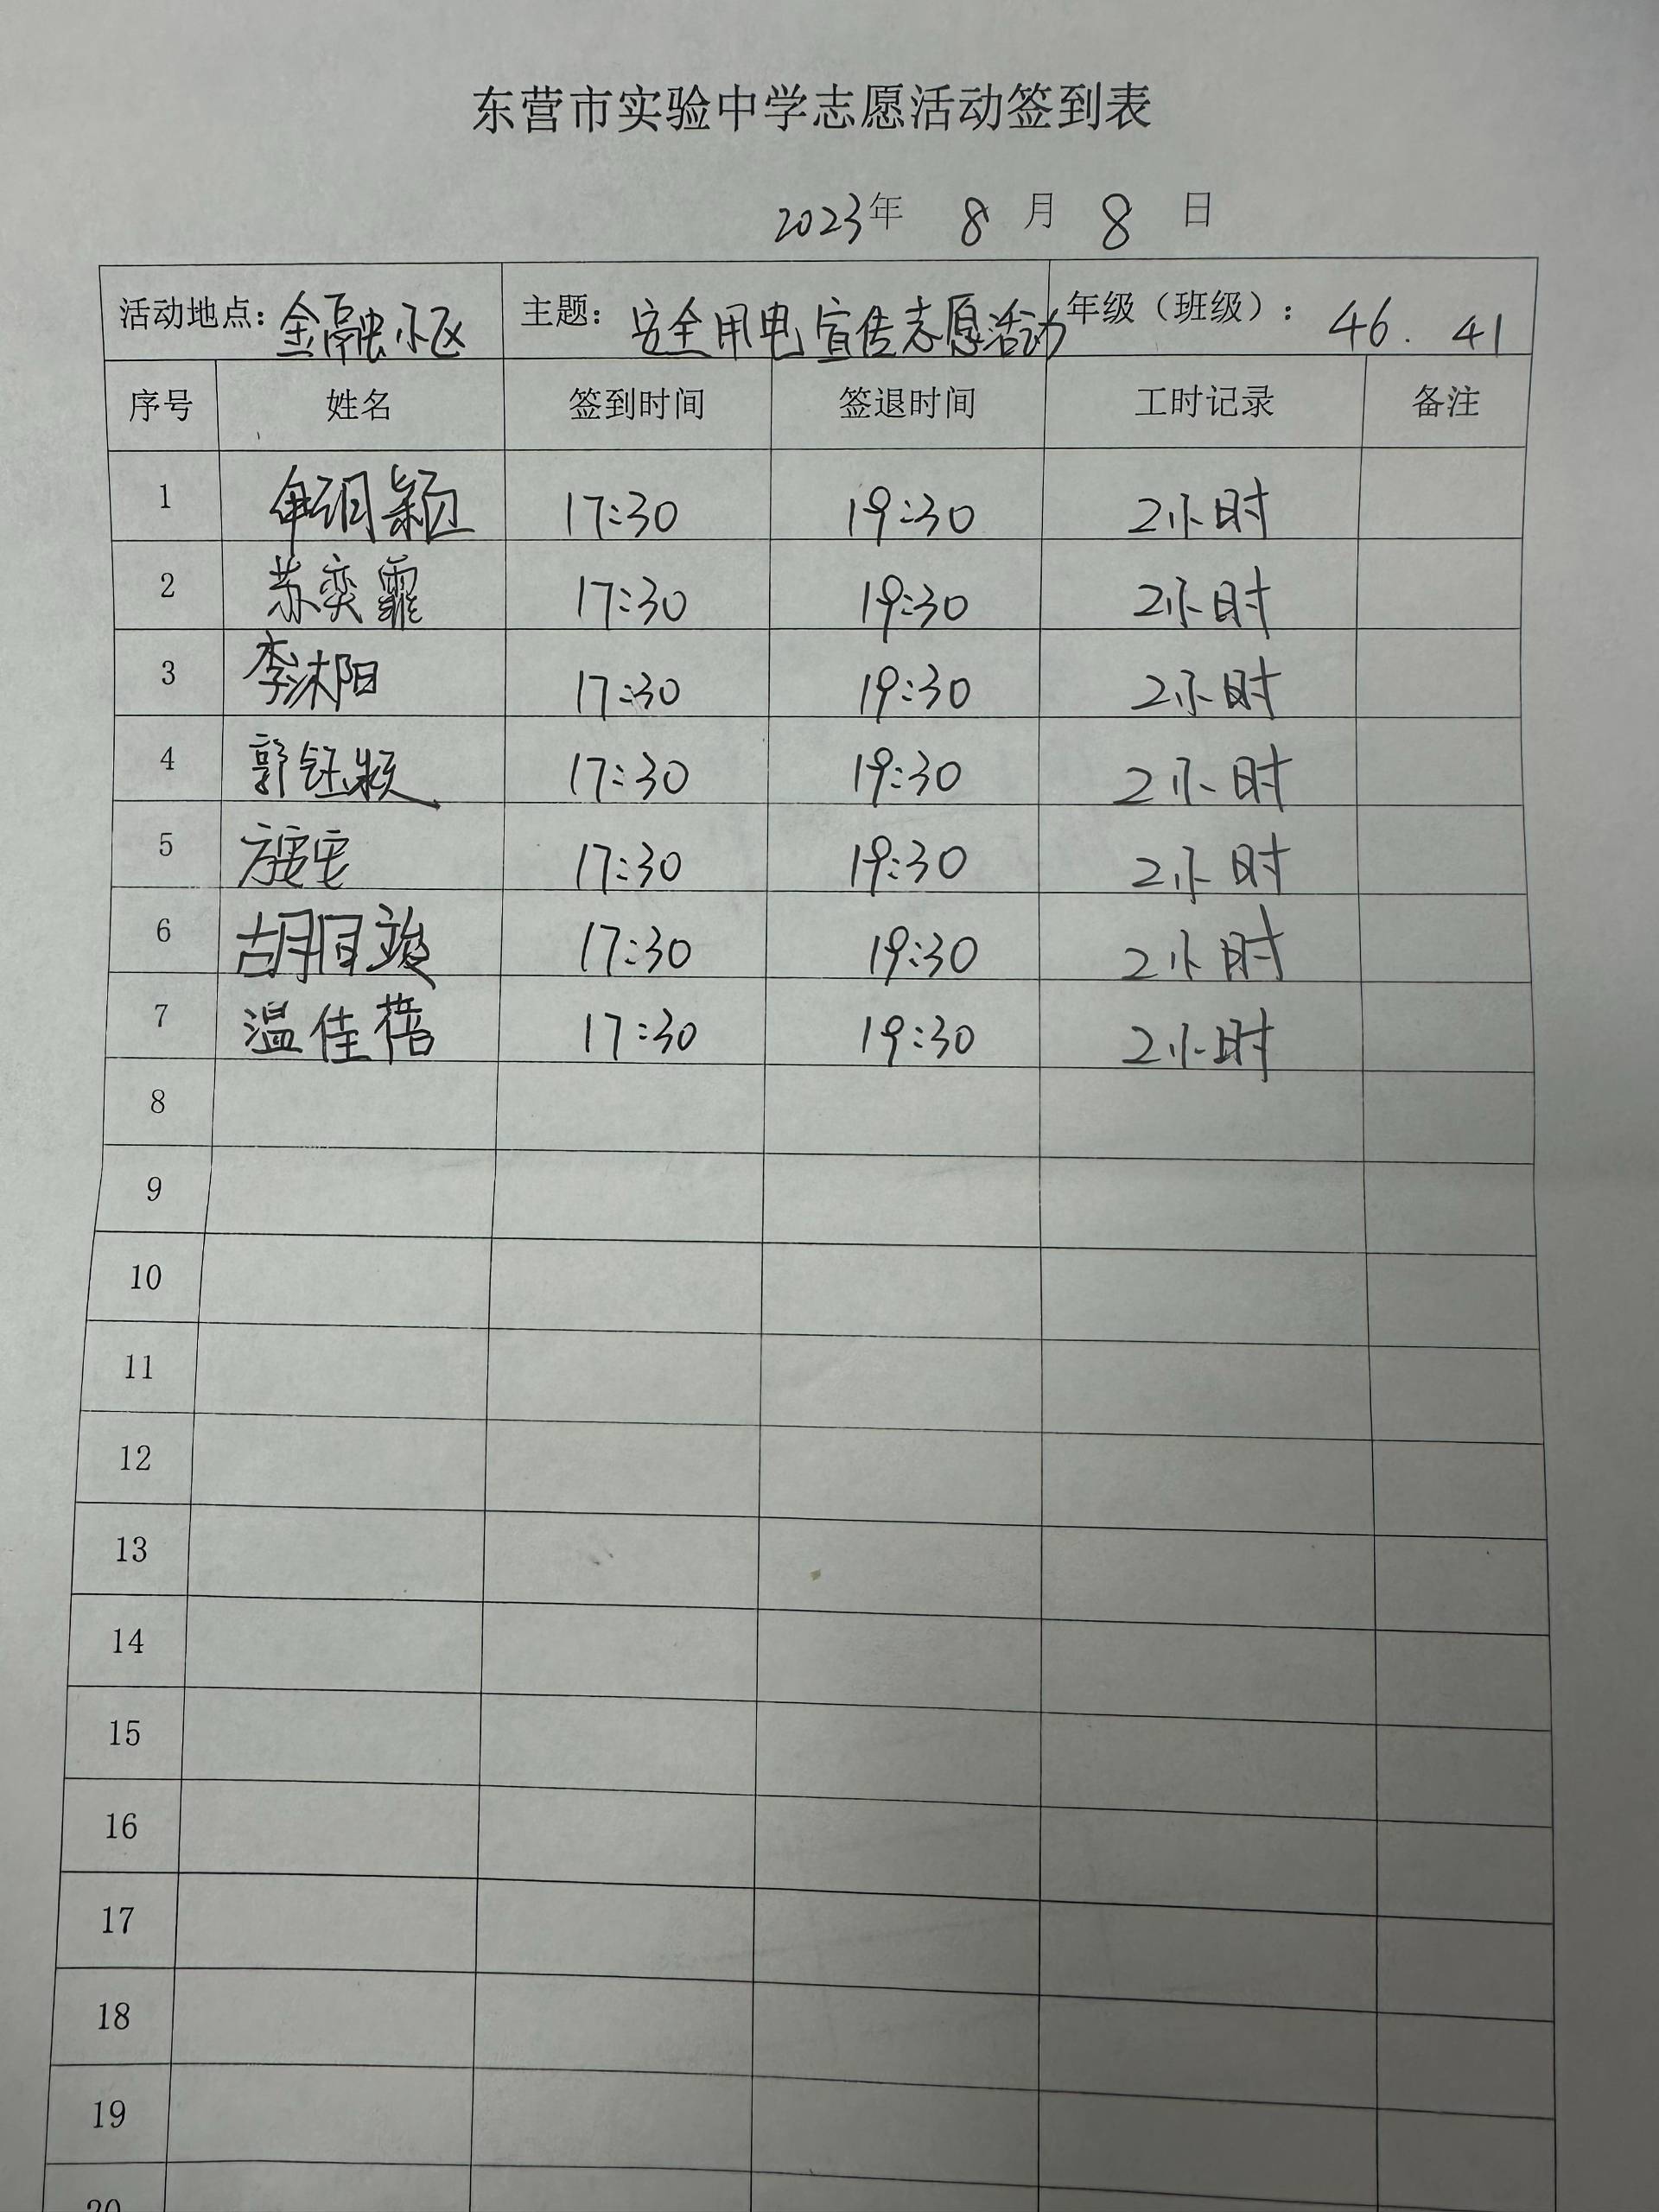 东营市实验中学志愿活动签到表
2023年 8 月 8 日
活动地点：金融小区 主题：安全用电宣传志愿活动 年级（班级）：46. 41
序号 姓名 签到时间 签退时间 工时记录 备注
1 颖 17:30 19:30 2小时
2 苏奕霏 17:30 19:30 2小时
3 李沐阳 17:30 19:30 2小时
4 郭钰颖 17:30 19:30 2小时
5 17:30 19:30 2小时
6 胡珺竣 17:30 19:30 2小时
7 温佳蓓 17:30 19:30 2小时
8
9
10
11
12
13
14
15
16
17
18
19
20